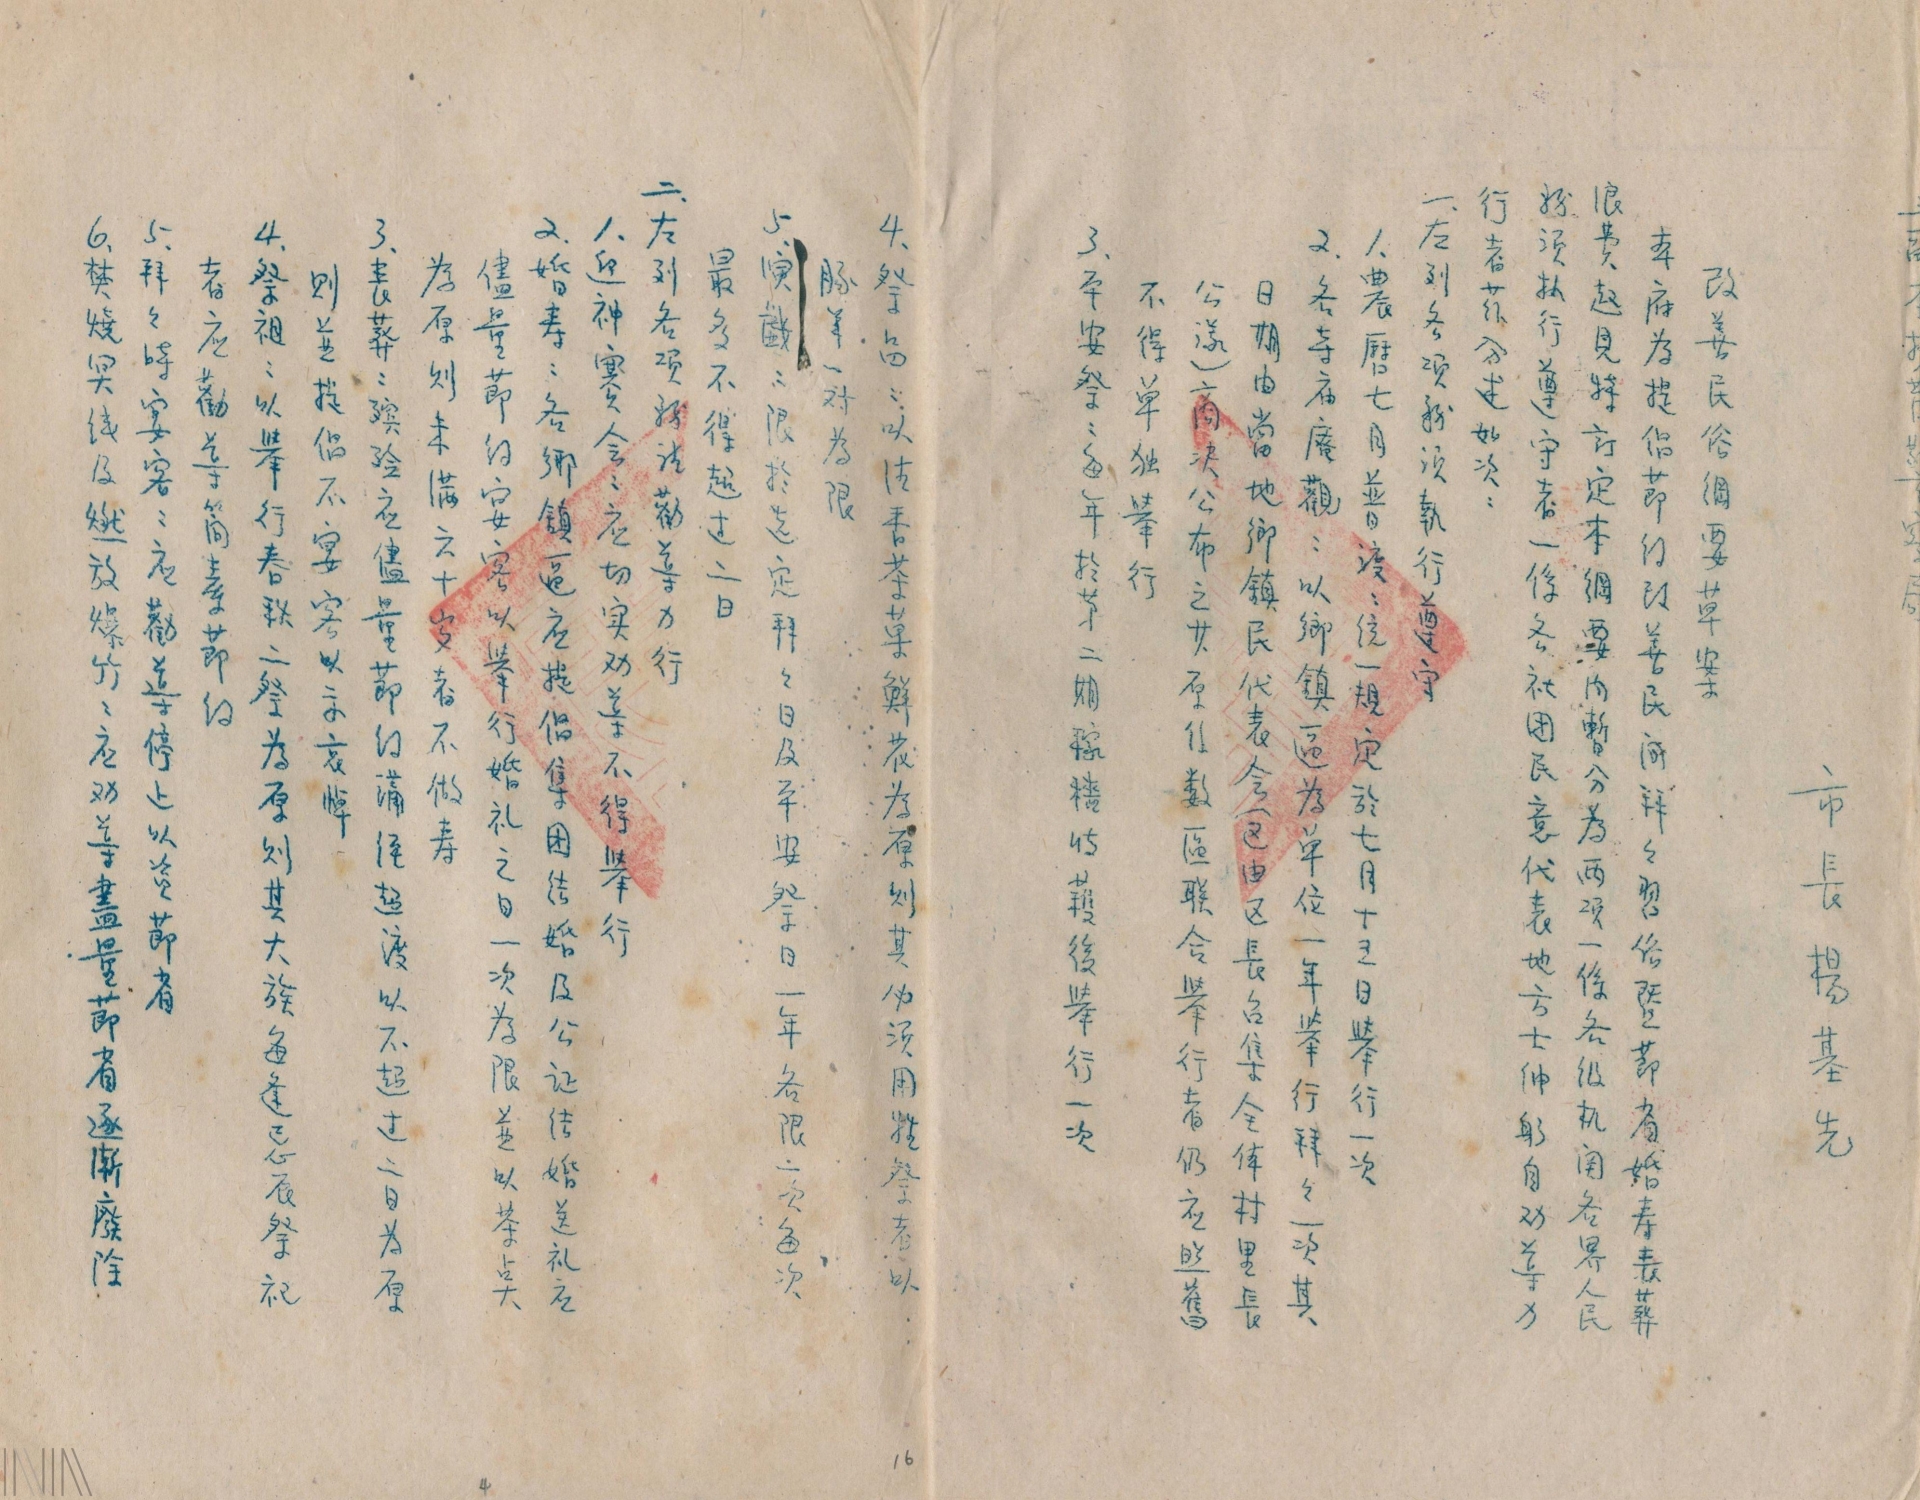 市長楊基先
改善民俗綱要草案
本府為提倡節約改善民间拜々習俗暨節省婚寿喪葬
浪費起見特訂定本綱要內暫分為两项一係各级机関各界人民
务须执行遵守者一係各社团民意代表地方士伸躬自劝導力
行者茲分述如次：
一、左列各项务须執行遵守
1.農曆七月普渡：統一規定於七月十五日舉行一次
2.各寺庙庵觀：以鄉鎮區為单位一年舉行拜々一次其
日期由當地鄉鎮民代表会（区由区長召集全体村里長
公議）商决公布之其原住数區联合舉行者仍应照舊
不得单独舉行
3.平安祭：每年於第二期稼穡收穫後舉行一次
4.祭品：以清香茶菓鮮花為原则其必须用牲祭者以
豚羊一对為限
5.演戲：限於选定拜々日及平安祭日一年各限二次每次
最多不得超过二日
二、左列各项务请勸導力行
1.迎神賽会：应切实劝導不得舉行
2.婚寿：各鄉鎮區应提倡集团结婚及公证结婚送礼应
儘量節约宴客以舉行婚礼之日一次為限並以茶点
為原则未滿六十岁者不做寿
3.喪葬：殯殓应儘量節约蒲経超渡以不超过二日为原
则並提倡不宴客以示哀悼
4.祭祖：以舉行春秋二祭為原则其大族每逢忌辰祭祀
者应勸導簡奉節约
5.拜々時宴客：应勸導停止以资節省
6.焚燒冥纸及燃放爆竹：应劝導盡量節省逐漸廢除
16
4